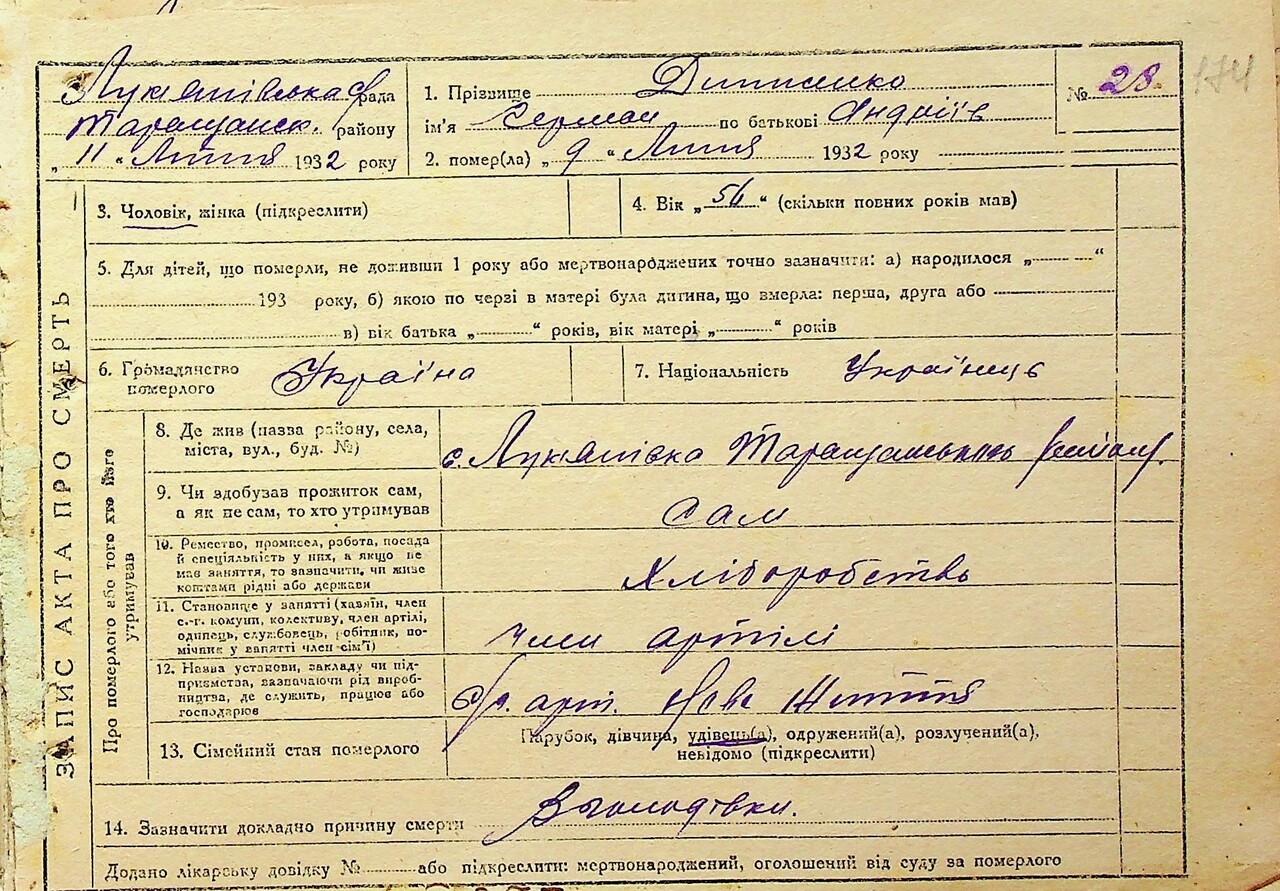 Лук'янівська с/рада
Таращанськ. району
„ 11 “ Липня 1932 року
1. Прізвище
ім'я Герман по батькові Андріїв
2. помер(ла) „ 9 “ Липня 1932 року
№ 28
174
ЗАПИС АКТА ПРО СМЕРТЬ
3. Чоловік, жінка (підкреслити)
4. Вік „ 56 “ (скільки повних років мав)
5. Для дітей, що померли, не доживши 1 року або мертвонароджених точно зазначити: а) народилося „ “
193 року, б) якою по черзі в матері була дитина, що вмерла: перша, друга або
в) вік батька „ “ років, вік матері „ “ років
6. Громадянство
померлого
Україна
7. Національність Українець
Про померлого або того хто його
утримував
8. Де жив (назва району, села,
міста, вул., буд. №)
с. Лук'янівка Таращанського району.
9. Чи здобував прожиток сам,
а як не сам, то хто утримував
Сам
10. Ремество, промисел, робота, посада
й спеціяльність у них, а якщо не
мав заняття, то зазначити, чи живе
коштами рідні або держави
Хліборобство
11. Становище у занятті (хазяїн, член
с.-г. комуни, колективу, член артілі,
одинець, службовець, робітник, по-
мічник у занятті член сім'ї)
член артілі
12. Назва установи, закладу чи під-
приємства, зазначаючи рід вироб-
ництва, де служить, працює або
господарює
арт. Нове Життя
13. Сімейний стан померлого
Парубок, дівчина, удівець(а), одружений(а), розлучений(а),
невідомо (підкреслити)
14. Зазначити докладно причину смерти
З голодівки.
Додано лікарську довідку № або підкреслити: мертвонароджений, оголошений від суду за померлого